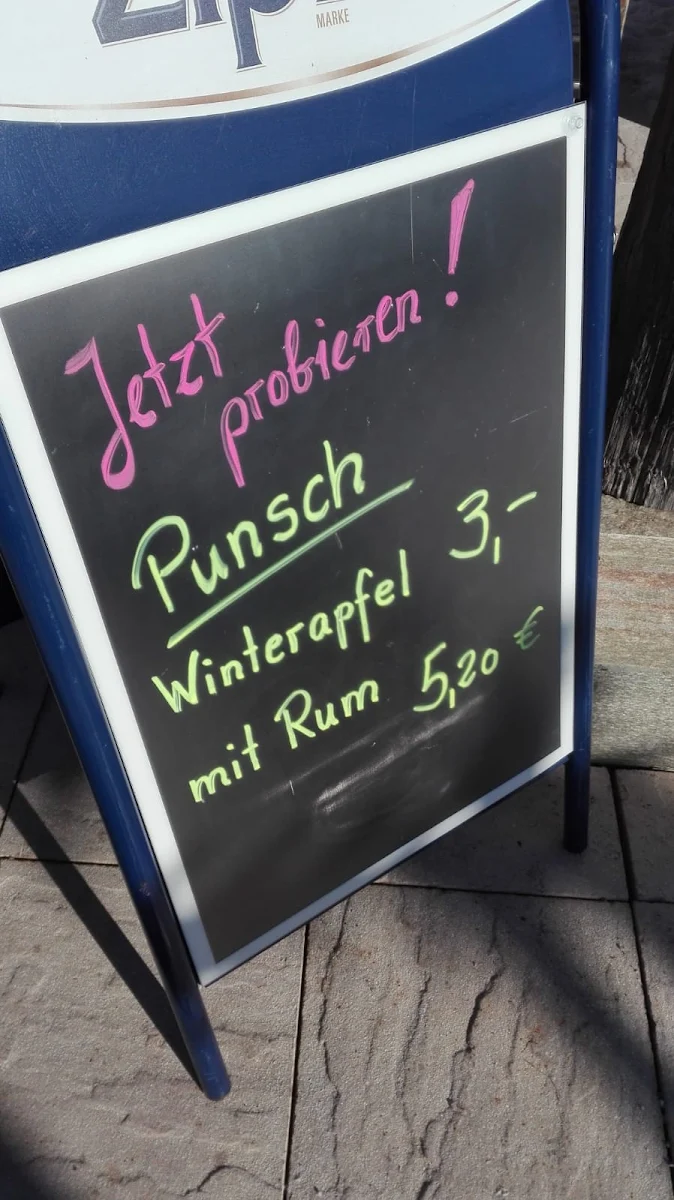 MARKE
Jetzt
probieren!
Punsch
Winterapfel 3,-
mit Rum 5,20 €